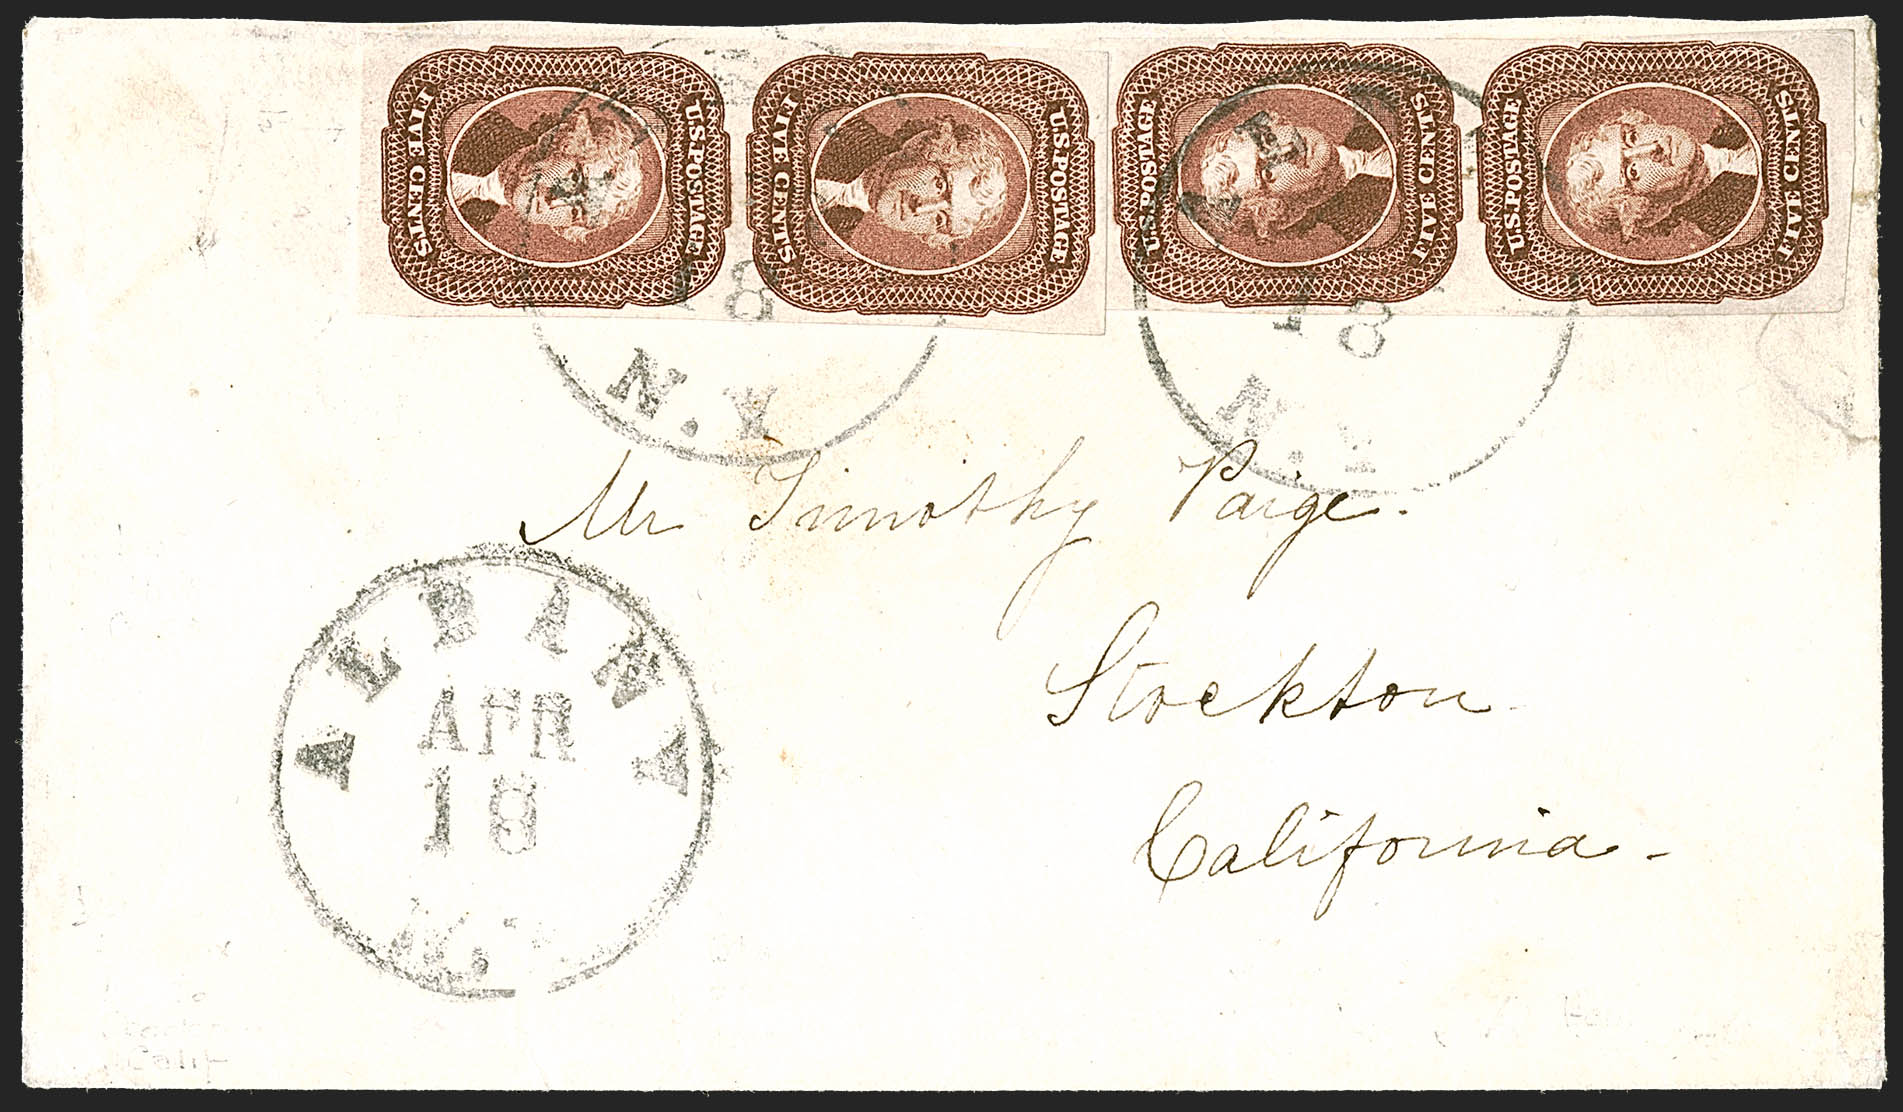 FIVE CENTS
U.S.POSTAGE
FIVE CENTS
U.S.POSTAGE
U.S.POSTAGE
FIVE CENTS
U.S.POSTAGE
FIVE CENTS
18
N.Y
18
N.Y
Mr Timothy Paige.
Stockton
California-
ALBANY
APR
18
N.
Calif